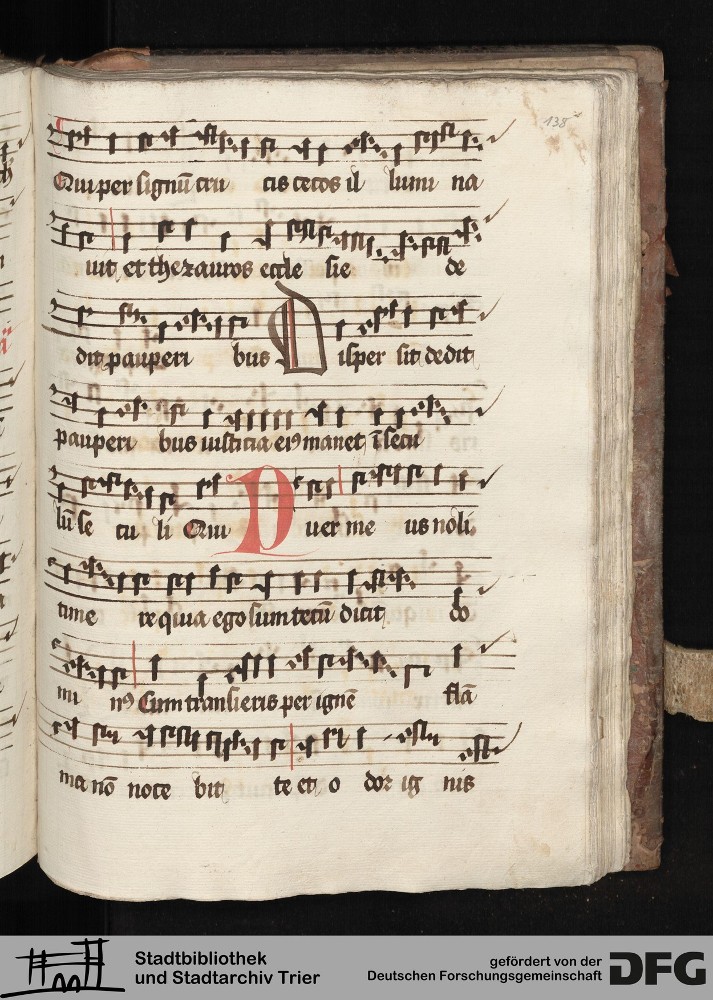 138r
Qui per signū cru cis cecos il lumi na
uit et thezauros eccle sie de
dit pauperi bus Disper sit dedit
pauperi bus iusticia eiꝰ manet ī secu
lū se cu li Qui Puer me us noli
time re quia ego sum tecū dicit do
mi nꝰ Cum transieris per ignē flā
ma nō noce bit te et o dor ig nis
Stadtbibliothek
und Stadtarchiv Trier
gefördert von der
Deutschen Forschungsgemeinschaft
DFG